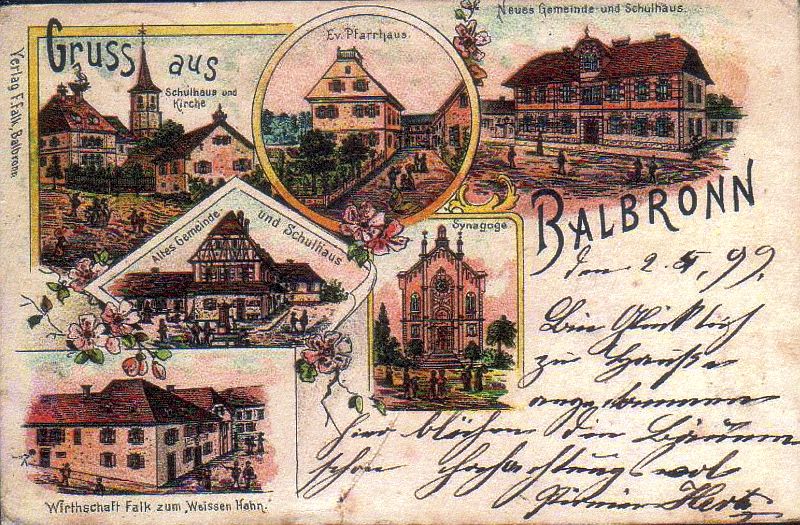 Gruss aus
Schulhaus und
Kirche
Ev. Pfarrhaus.
Neues Gemeinde und Schulhaus.
Verlag F. Falk, Balbronn.
Altes Gemeinde und Schulhaus
Synagoge
BALBRONN
den 2. 99.
Bin Glücklich
zu Hause
angekommen
hier blühen die Bäume
schon hochachtungsvol
Hertz
Wirthschaft Falk zum „Weissen Hahn.